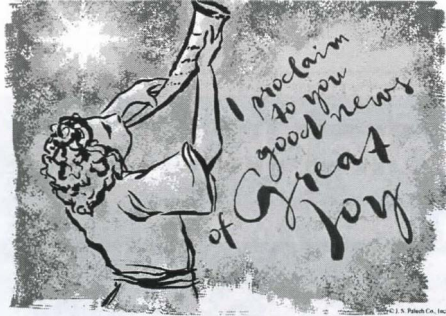 I proclaim
to you
good news
of Great
Joy
© J. S. Paluch Co., Inc.